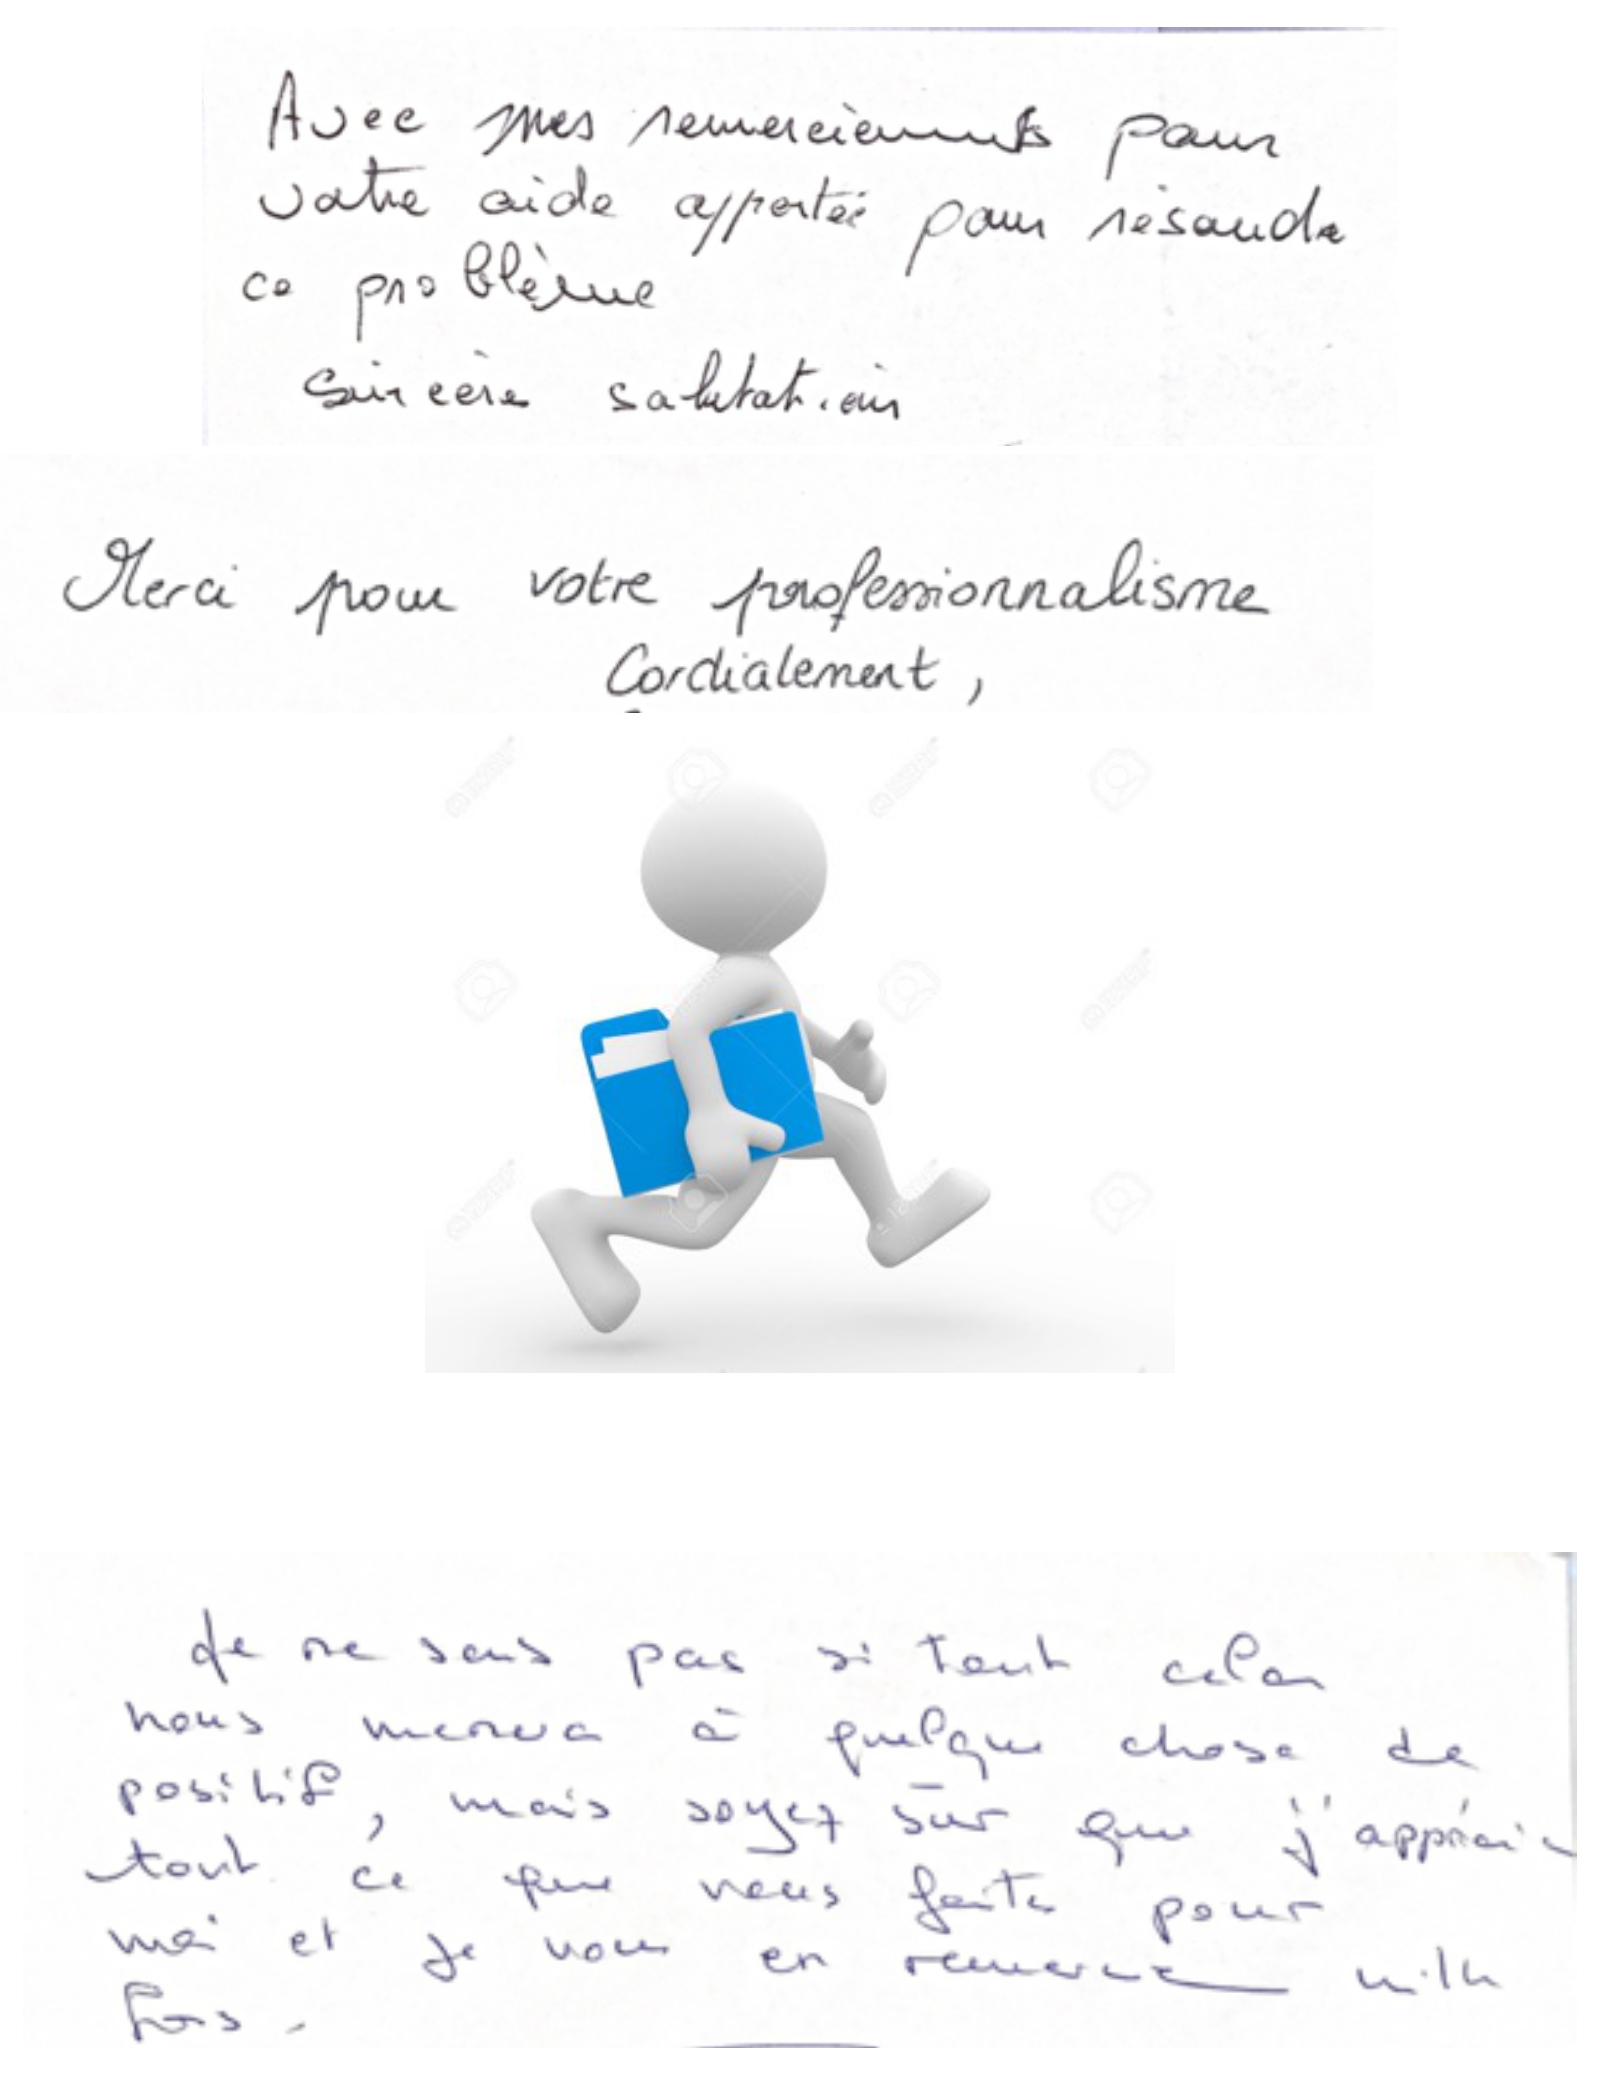 Avec mes remerciements pour
votre aide apportée pour résoudre
ce problème
sincère salutation
Merci pour votre professionnalisme
Cordialement,
Je ne sais pas si tout cela
nous menera à quelque chose de
positif, mais soyez sûr que j'apprécie
tout ce que vous faites pour
moi et je vous en remercie mille
fois.